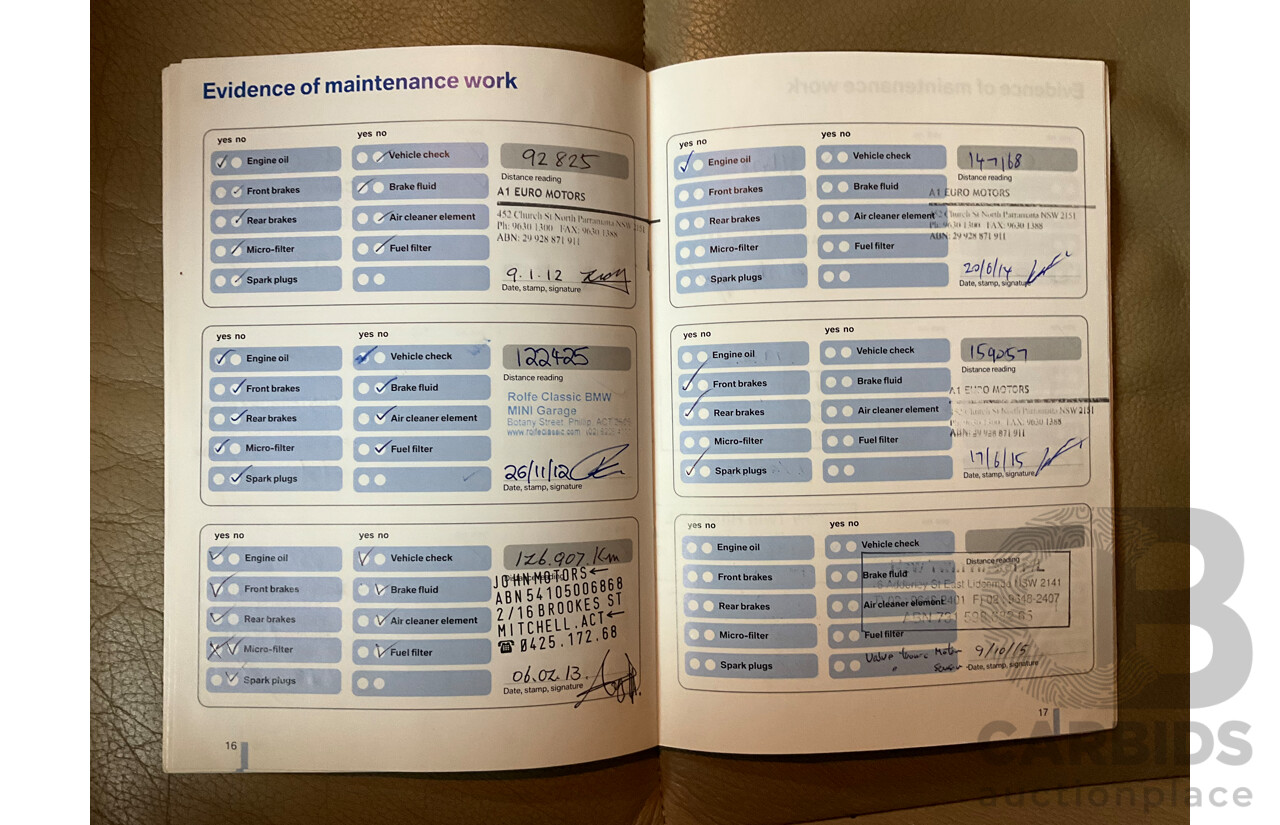 Evidence of maintenance work
yes no
yes no
Engine oil
Vehicle check
92825
Distance reading
Front brakes
Brake fluid
A1 EURO MOTORS
Rear brakes
Air cleaner element
452 Church St North Parramatta NSW 2151
Ph: 9630 1300 FAX: 9630 1388
ABN: 29 928 871 911
Micro-filter
Fuel filter
Spark plugs
9.1.12
Date, stamp, signature
yes no
yes no
Engine oil
Vehicle check
122425
Distance reading
Front brakes
Brake fluid
Rolfe Classic BMW
MINI Garage
Rear brakes
Air cleaner element
Botany Street, Phillip, ACT
www.rolfeclassic.com
Micro-filter
Fuel filter
Spark plugs
26/11/12
Date, stamp, signature
yes no
yes no
Engine oil
Vehicle check
126.907 Km
JOHN MOTORS
Front brakes
Brake fluid
ABN 54105006868
2/16 BROOKES ST
Rear brakes
Air cleaner element
MITCHELL.ACT
☎ 0425.172.68
Micro-filter
Fuel filter
Spark plugs
06.02.13.
Date, stamp, signature
16
yes no
yes no
Engine oil
Vehicle check
147168
Distance reading
Front brakes
Brake fluid
A1 EURO MOTORS
Rear brakes
Air cleaner element
Church St North Parramatta NSW 2151
Ph: 9630 1300 FAX: 9630 1388
ABN: 29 928 871 911
Micro-filter
Fuel filter
Spark plugs
20/6/14
Date, stamp, signature
yes no
yes no
Engine oil
Vehicle check
159057
Distance reading
Front brakes
Brake fluid
A1 EURO MOTORS
Rear brakes
Air cleaner element
452 Church St North Parramatta NSW 2151
FAX: 9630 1388
ABN: 29 928 871 911
Micro-filter
Fuel filter
Spark plugs
17/6/15
Date, stamp, signature
yes no
yes no
Engine oil
Vehicle check
Distance reading
Front brakes
Brake fluid
St East Lidcombe NSW 2141
Rear brakes
Air cleaner element
9648-2407
Micro-filter
Fuel filter
Spark plugs
Valve Motor 9/10/15
Sensor
Date, stamp, signature
17
CARBIDS
auctionplace